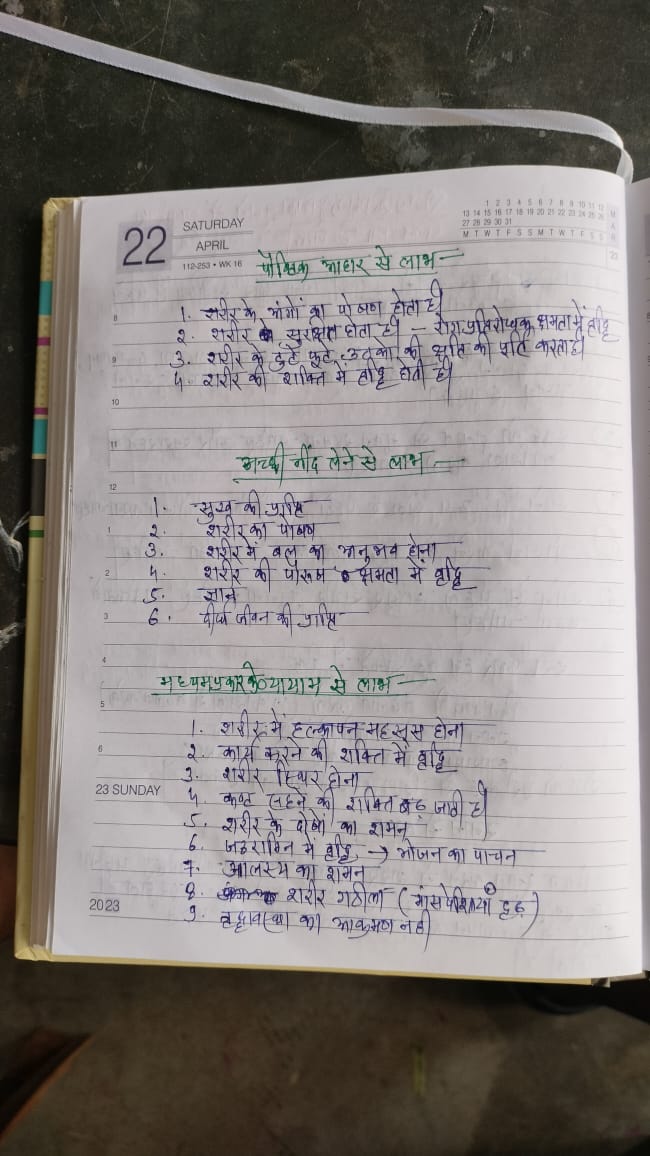 22
SATURDAY
APRIL
112-253 • WK 16
1 2 3 4 5 6 7 8 9 10 11 12
13 14 15 16 17 18 19 20 21 22 23 24 25 26
27 28 29 30 31
M T W T F S S M T W T F S S
M A R
23
पौष्टिक आहार से लाभ -
8
1. शरीर के अंगों का पोषण होता है।
2. शरीर सुरक्षित होता है। - रोगप्रतिरोधक क्षमता में वृद्धि
9
3. शरीर के टुटे फूटे उतको की क्षति की पूर्ति करता है।
4. शरीर की शक्ति में वृद्धि होती है।
10
11
अच्छी नींद लेने से लाभ -
12
1. सुख की प्राप्ति
1
2. शरीर का पोषण
3. शरीर में बल का अनुभव होना
2
4. शरीर की पौरुष क्षमता में वृद्धि
5. ज्ञान
3
6. दीर्घ जीवन की प्राप्ति
4
मध्यम प्रकार के व्यायाम से लाभ -
5
1. शरीर में हल्कापन महसूस होना
6
2. कार्य करने की शक्ति में वृद्धि
3. शरीर स्थिर होना
23 SUNDAY
4. कष्ट सहने की शक्ति बढ़ जाती है।
5. शरीर के दोषों का शमन
6. जठराग्नि में वृद्धि → भोजन का पाचन
7. आलस्य का शमन
8. शरीर गठीला (मांसपेशियाँ दृढ़)
2023
9. वृद्धावस्था का आक्रमण नही